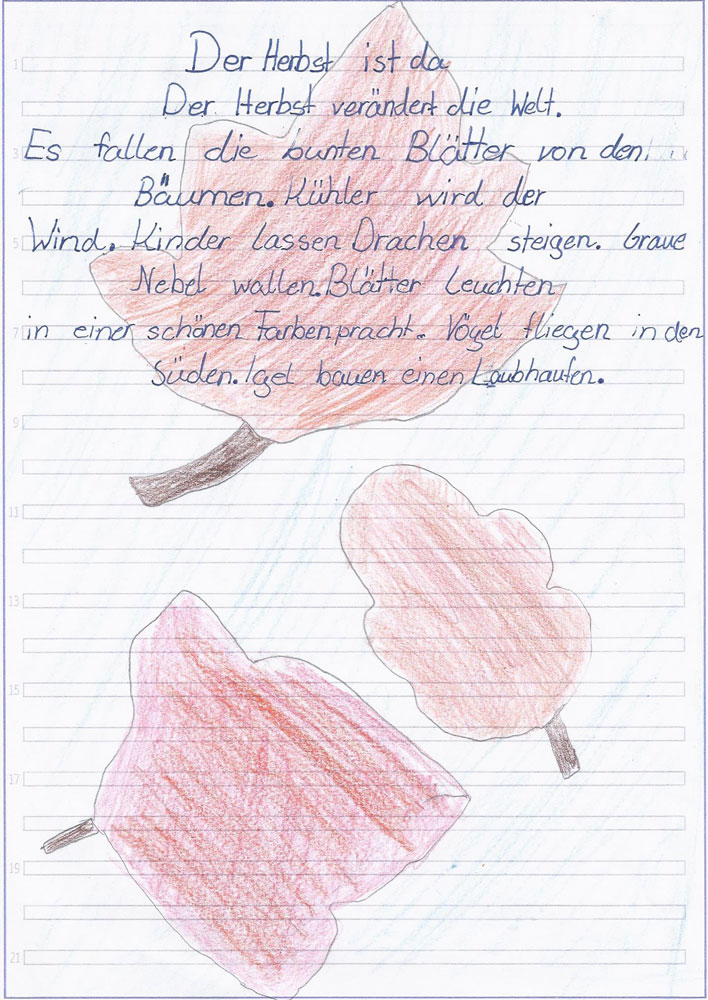 Der Herbst ist da
Der Herbst verändert die Welt.
Es fallen die bunten Blätter von den
Bäumen. Kühler wird der
Wind. Kinder lassen Drachen steigen. Graue
Nebel wallen. Blätter leuchten
in einer schönen Farbenpracht. Vögel fliegen in den
Süden. Igel bauen einen Laubhaufen.
1
3
5
7
9
11
13
15
17
19
21